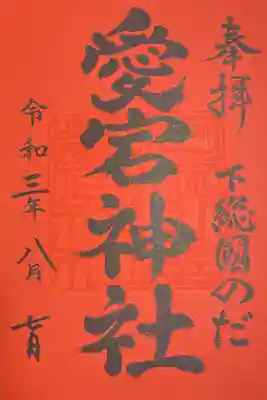 奉拝 下総國のだ
愛宕神社
令和三年八月七日